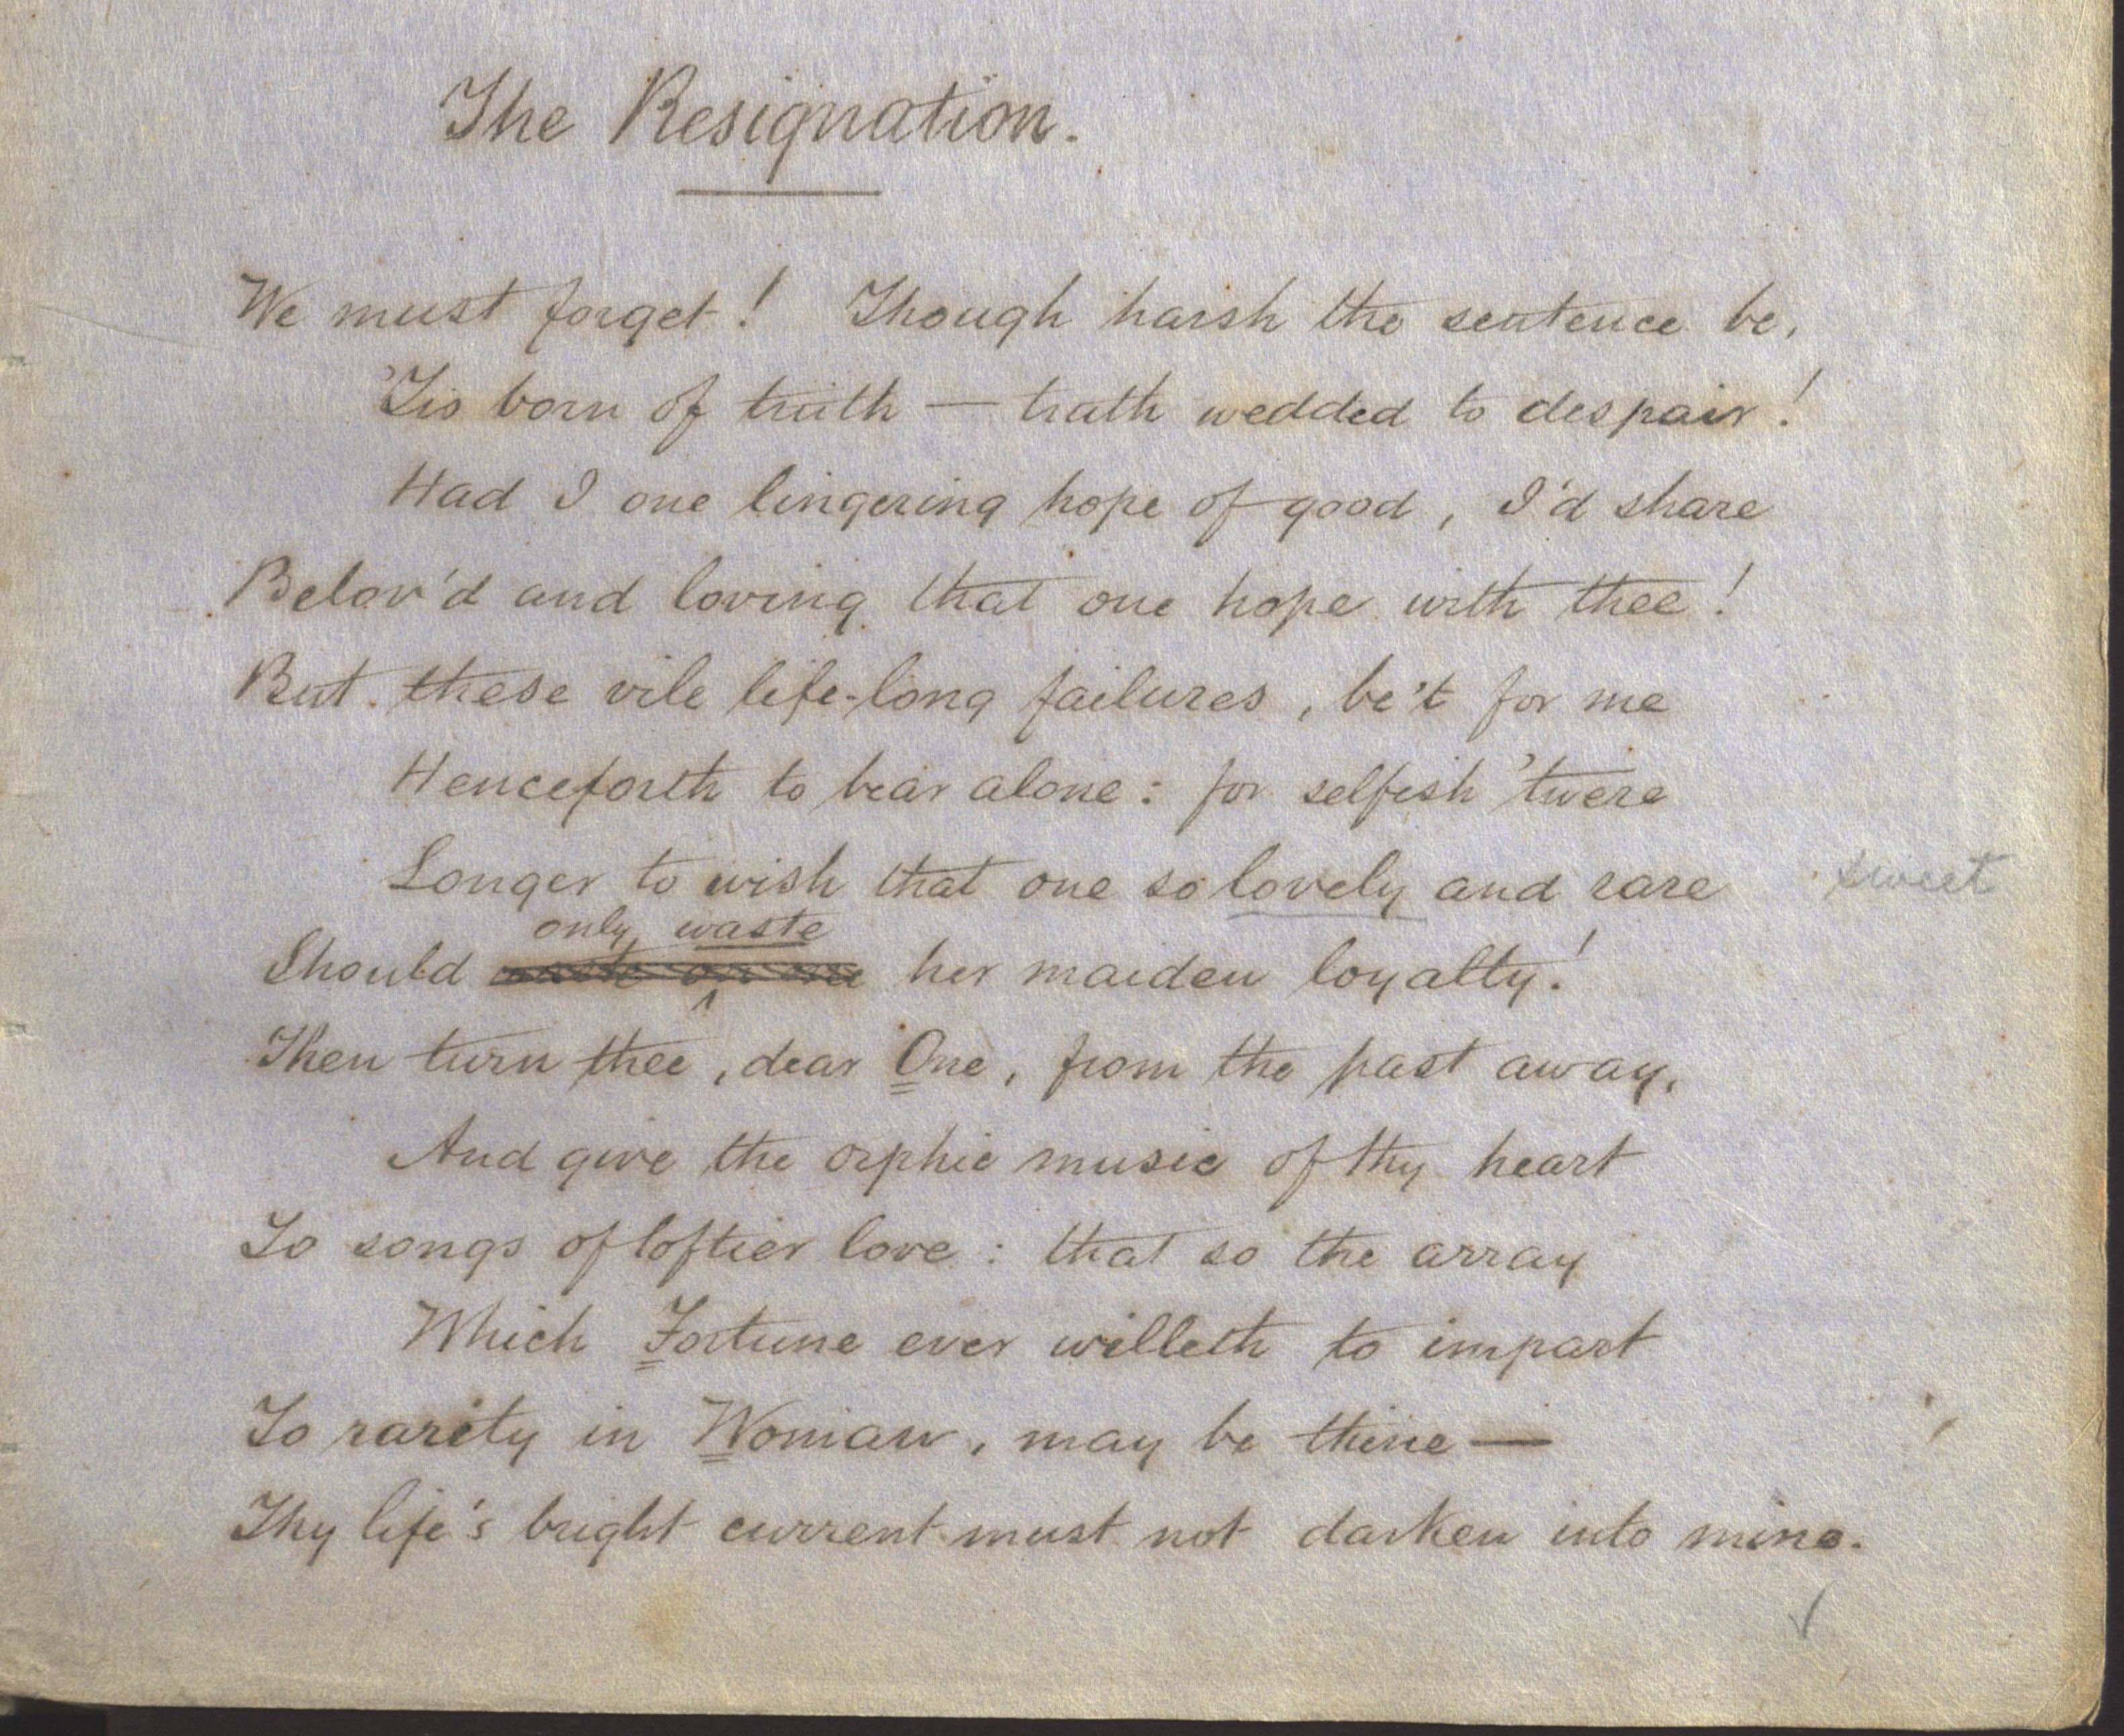 The Resignation.
We must forget! Though harsh the sentence be,
'Tis born of truth — truth wedded to despair!
Had I one lingering hope of good, I'd share
Belov'd and loving that one hope with thee!
But these vile life-long failures, be't for me
Henceforth to bear alone: for selfish 'twere
Longer to wish that one so lovely and rare sweet
only waste
Should her maiden loyalty!
Then turn thee, dear One, from the past away,
And give the orphic music of thy heart
To songs of loftier love: that so the array
Which Fortune ever willeth to impart
To rarity in Woman, may be thine —
Thy life's bright current must not darken into mine.